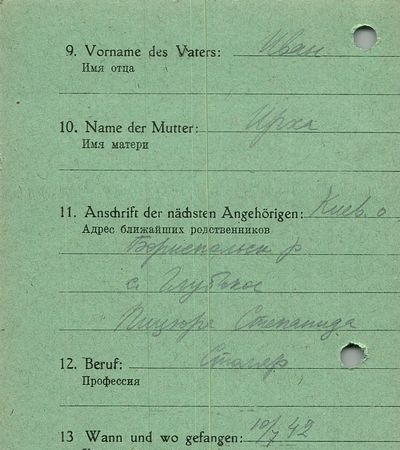 9. Vorname des Vaters: Иван
Имя отца
10. Name der Mutter: Ирха
Имя матери
11. Anschrift der nächsten Angehörigen: Киев. о
Адрес ближайших родственников
Бориспольск р
с. Глубокое
Степанида
12. Beruf: Столяр
Профессия
13 Wann und wo gefangen: 10/7 42